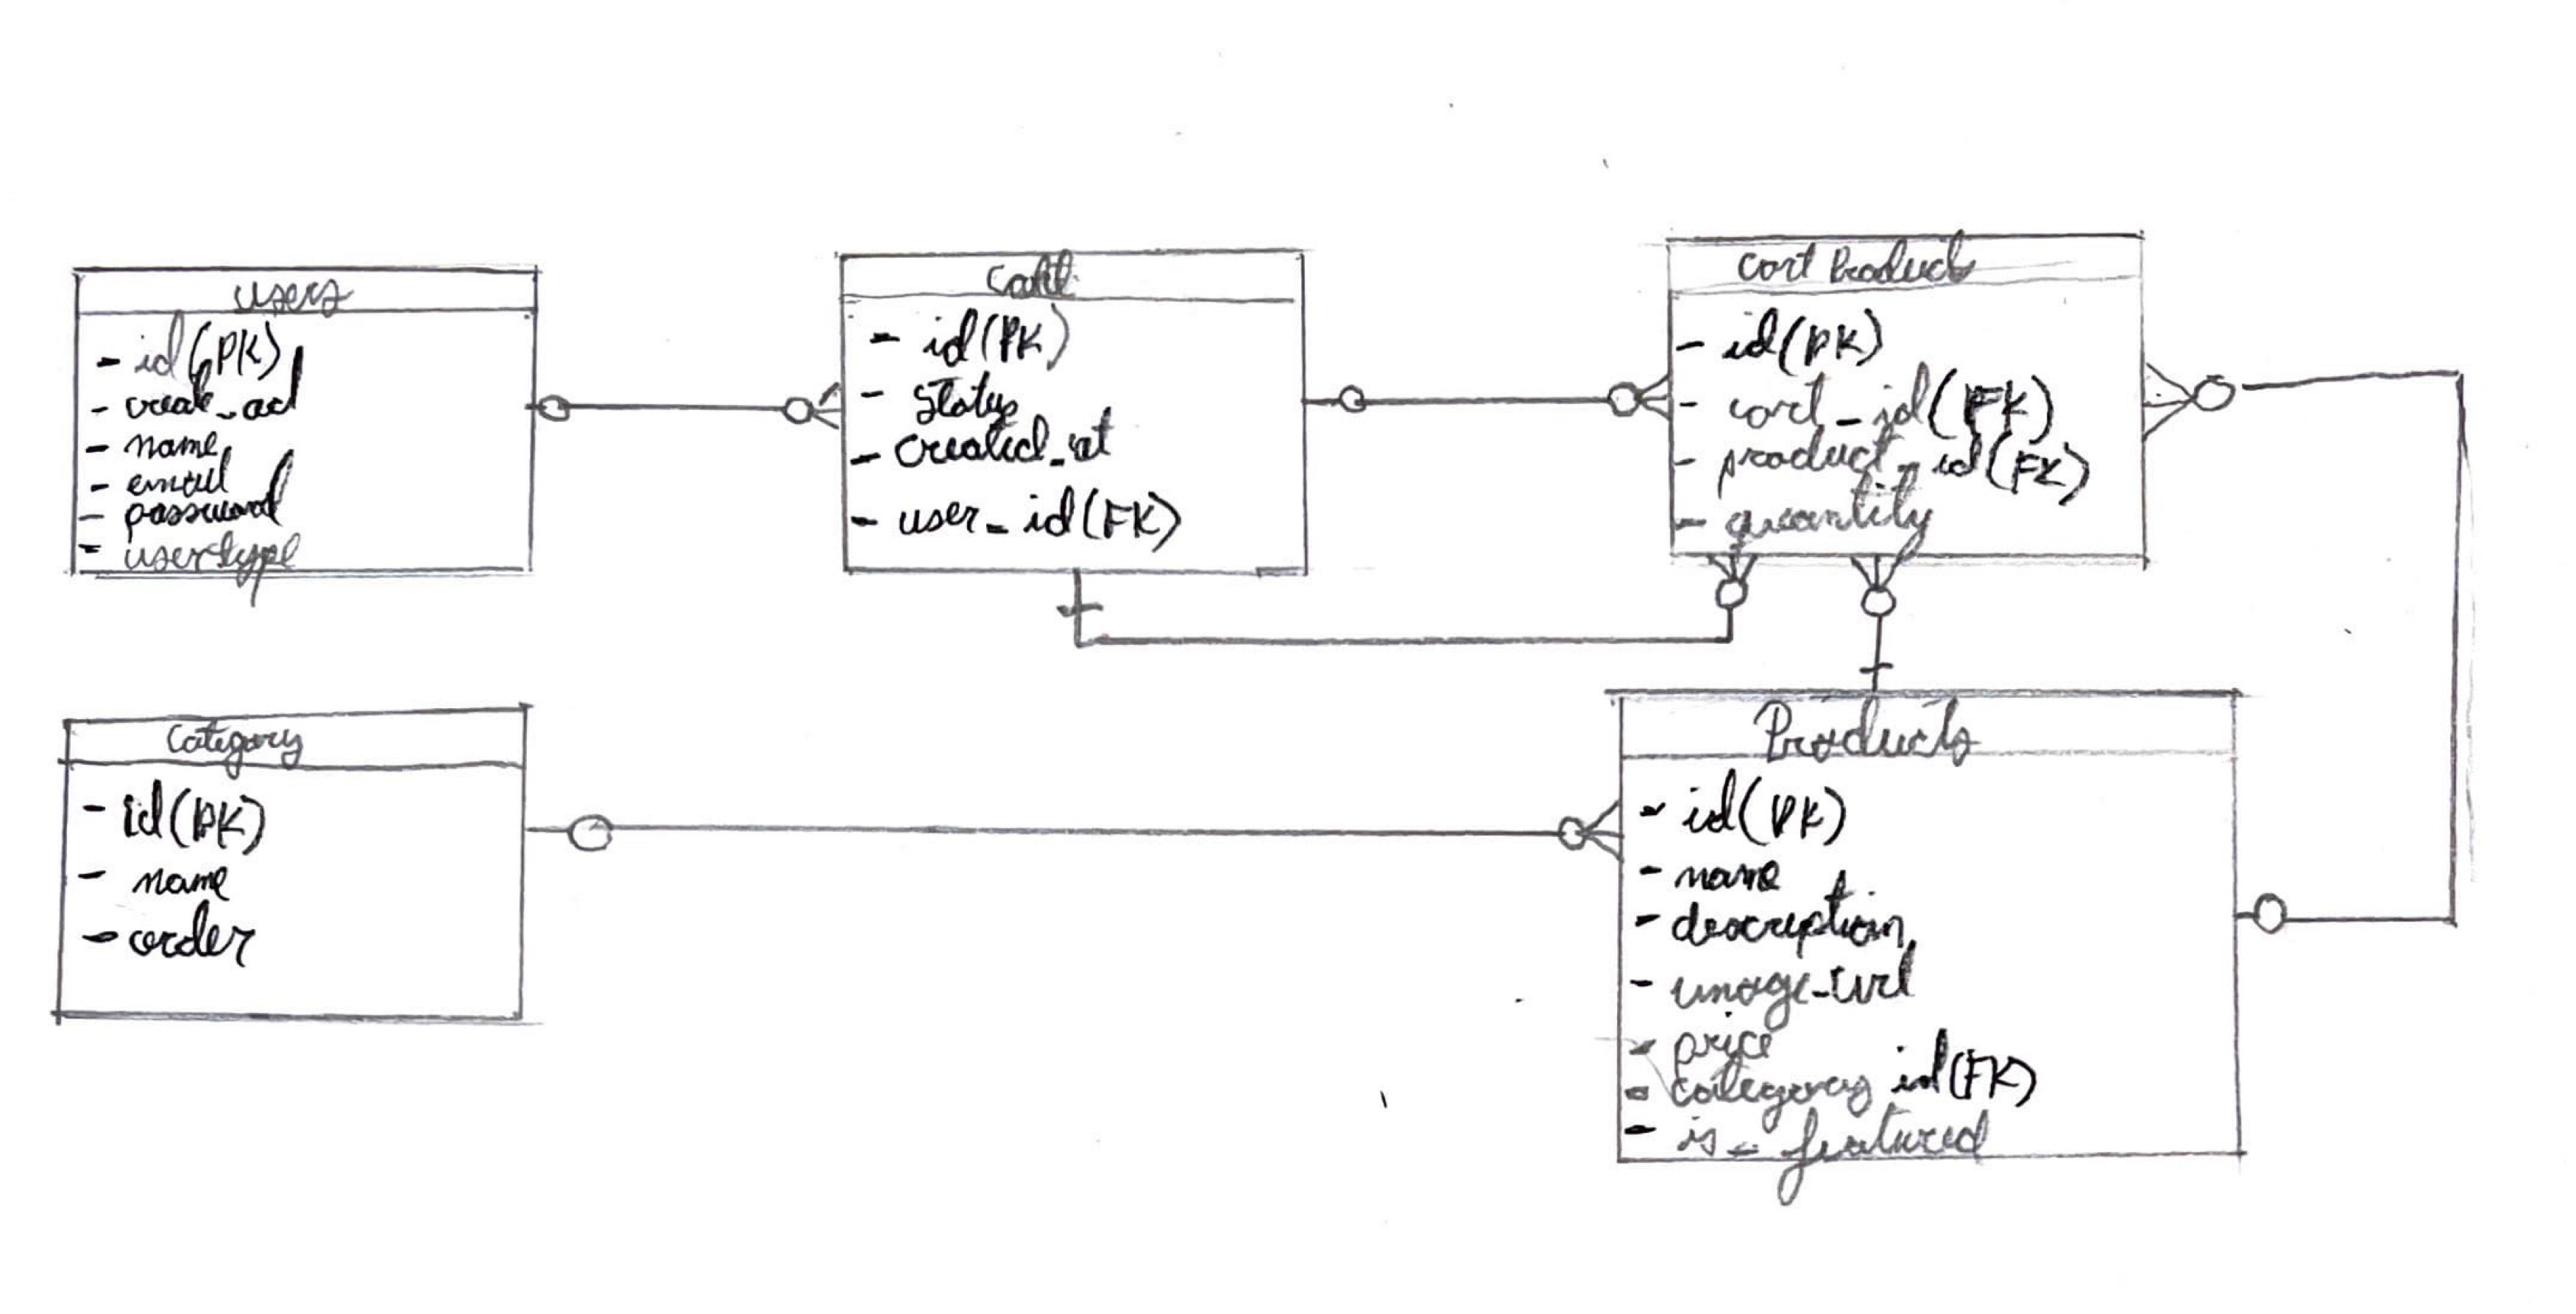 users
- id (PK)
- name
- email
- password
- usertype
Cart
- id (PK)
- status
- created_at
- user_id (FK)
Cart Products
- id (PK)
- cart_id (FK)
- product_id (FK)
- quantity
Category
- id (PK)
- name
- order
Products
- id (PK)
- name
- description
- image_url
- price
- category id (FK)
- is_featured